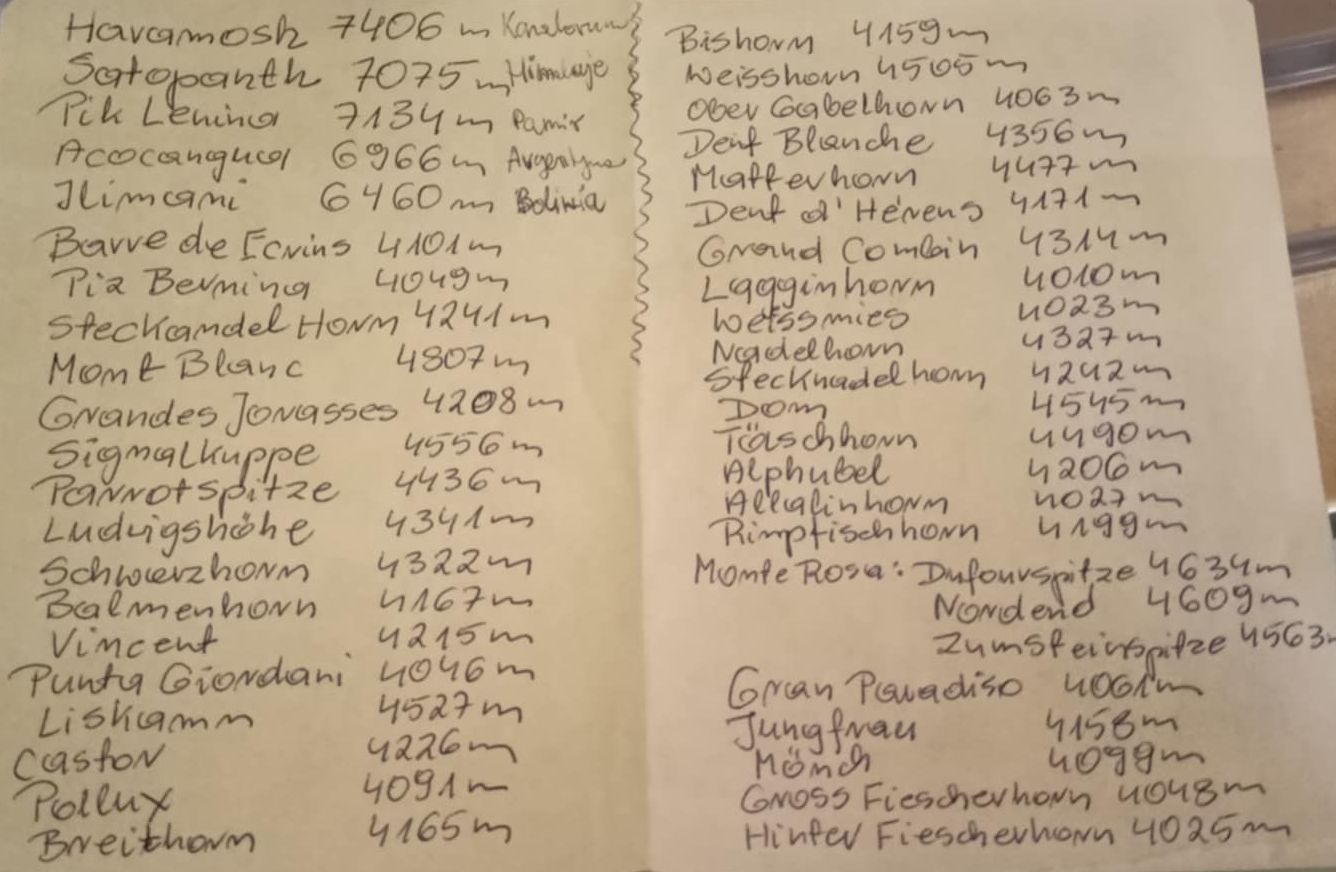 Haramosh 7406 m Karakorum
Satopanth 7075 m Himalaje
Pik Lenina 7134 m Pamir
Acocangua 6966 m Argentyna
Ilimani 6460 m Boliwia
Barre de Ecrins 4101 m
Piz Bernina 4049 m
Steckandel Horn 4241 m
Mont Blanc 4807 m
Grandes Jorasses 4208 m
Sigmalkuppe 4556 m
Parrotspitze 4436 m
Ludwigshöhe 4341 m
Schwarzhorn 4322 m
Balmenhorn 4167 m
Vincent 4215 m
Punta Giordani 4046 m
Liskamm 4527 m
Castor 4226 m
Pollux 4091 m
Breithorn 4165 m
Bishorn 4159 m
Weisshorn 4505 m
Ober Gabelhorn 4063 m
Dent Blanche 4356 m
Matterhorn 4477 m
Dent d'Hérens 4171 m
Grand Combin 4314 m
Lagginhorn 4010 m
Weissmies 4023 m
Nadelhorn 4327 m
Stecknadelhorn 4242 m
Dom 4545 m
Täschhorn 4490 m
Alphubel 4206 m
Allalinhorn 4027 m
Rimpfischhorn 4199 m
Monte Rosa: Dufourspitze 4634 m
Nordend 4609 m
Zumsteinspitze 4563 m
Gran Paradiso 4061 m
Jungfrau 4158 m
Mönch 4099 m
Gross Fiescherhorn 4048 m
Hinter Fiescherhorn 4025 m